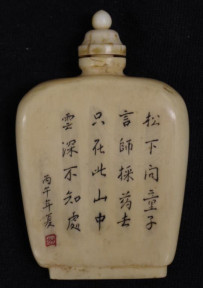 松下问童子
言師採药去
只在此山中
雲深不知處
丙午年夏